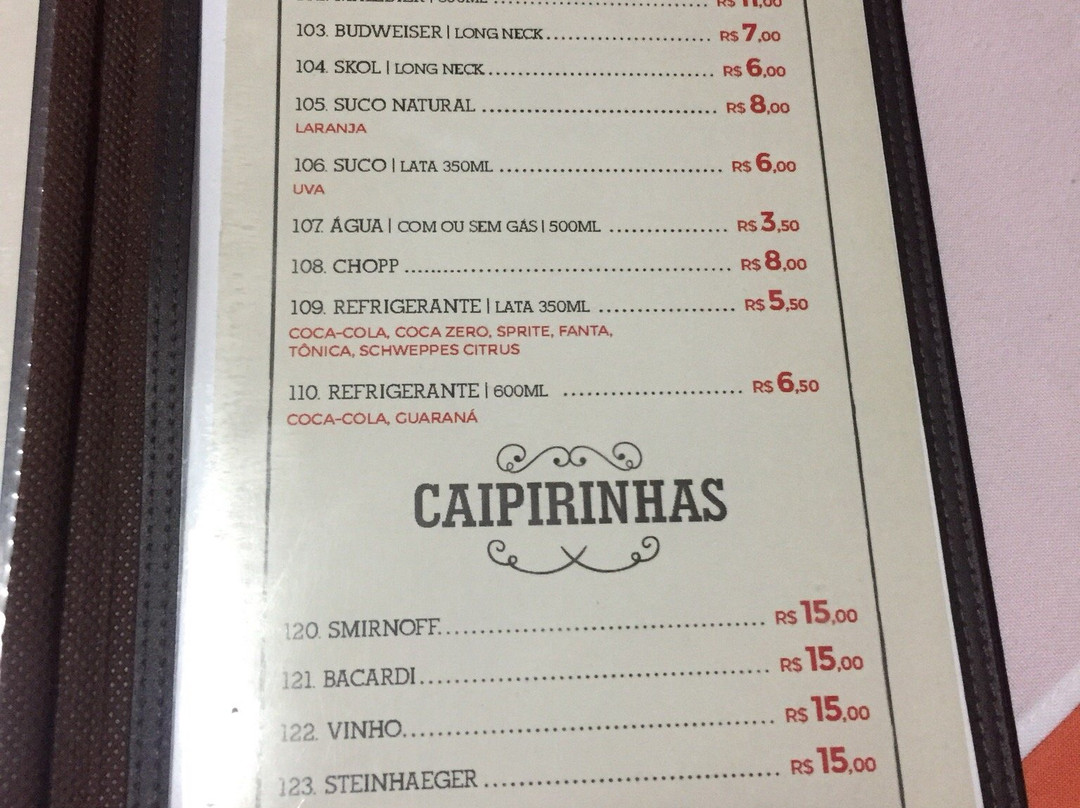 R$ 11,00
103. BUDWEISER | LONG NECK R$ 7,00
104. SKOL | LONG NECK R$ 6,00
105. SUCO NATURAL R$ 8,00
LARANJA
106. SUCO | LATA 350ML R$ 6,00
UVA
107. ÁGUA | COM OU SEM GÁS | 500ML R$ 3,50
108. CHOPP R$ 8,00
109. REFRIGERANTE | LATA 350ML R$ 5,50
COCA-COLA, COCA ZERO, SPRITE, FANTA,
TÔNICA, SCHWEPPES CITRUS
110. REFRIGERANTE | 600ML R$ 6,50
COCA-COLA, GUARANÁ
CAIPIRINHAS
120. SMIRNOFF R$ 15,00
121. BACARDI R$ 15,00
122. VINHO R$ 15,00
123. STEINHAEGER R$ 15,00